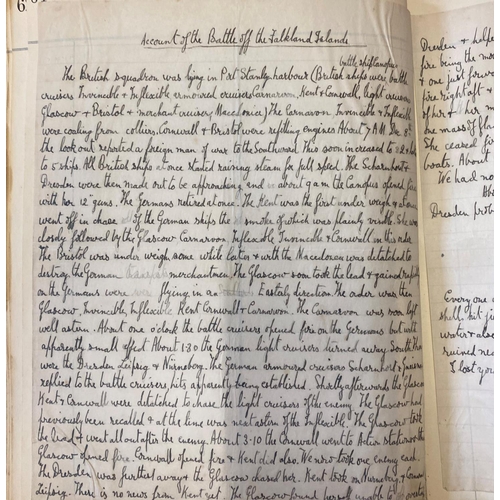 6
Account of the Battle off the Falkland Islands
battleship Canopus
The British squadron was lying in Port Stanley harbour (British ships were battle
cruisers Invincible & Inflexible armoured cruisers Carnarvon, Kent & Cornwall, light cruisers
Glasgow & Bristol & merchant cruiser Macedonia) The Carnarvon Invincible & Inflexible
were coaling from colliers, Cornwall & Bristol were refitting engines About 7 AM Dec 8th
the look out reported a foreign man of war to the Southward. This soon increased to 2 &
to 5 ships. All British ships at once started raising steam for full speed. The Scharnhorst &
Dresden were then made out to be approaching and about 9 am the Canopus opened fire
with her 12" guns. The Germans retired at once. The Kent was the first under weigh & at once
went off in chase of the German ships the smoke of which was plainly visible. She was
closely followed by the Glasgow Carnarvon Inflexible Invincible & Cornwall in this order
The Bristol was under weigh some while later & with the Macedonia was detatched to
destroy the German merchantmen. The Glasgow soon took the lead & gained rapidly
on the Germans were flying in an Easterly direction. The order was then
Glasgow, Invincible, Inflexible Kent Cornwall & Carnarvon. The Carnarvon was soon left
well astern. About one o'clock the battle cruisers opened fire on the Germans but with
apparently small effect About 1-30 the German light cruisers turned away South they
were the Dresden Leipzig & Nürnberg. The German armoured cruisers Scharnhorst & Gneisenau
replied to the battle cruisers, hits apparently being established. Shortly afterwards the Glasgow
Kent & Cornwall were detatched to chase the light cruisers of the enemy. The Glasgow had
previously been recalled & at the time was next astern of the Inflexible. The Glasgow took
the lead & went all out after the enemy. About 3-10 the Cornwall went to Action stations & the
Glasgow opened fire. Cornwall opened fire & Kent did also. We now took one enemy each
The Dresden was furthest away & the Glasgow chased her. Kent took on Nurnberg, & Cornwall
Leipzig. There is no news from Kent yet. The Glasgow found herself unable to
Dresden & helped
fire being the mo
& one just forwa
fire right aft &
of her & her m
one mass of fla
She ceased fir
boats. About
We had no
Dresden prob
Every one
shell, hit ju
water & also
ruined nea
I lost you